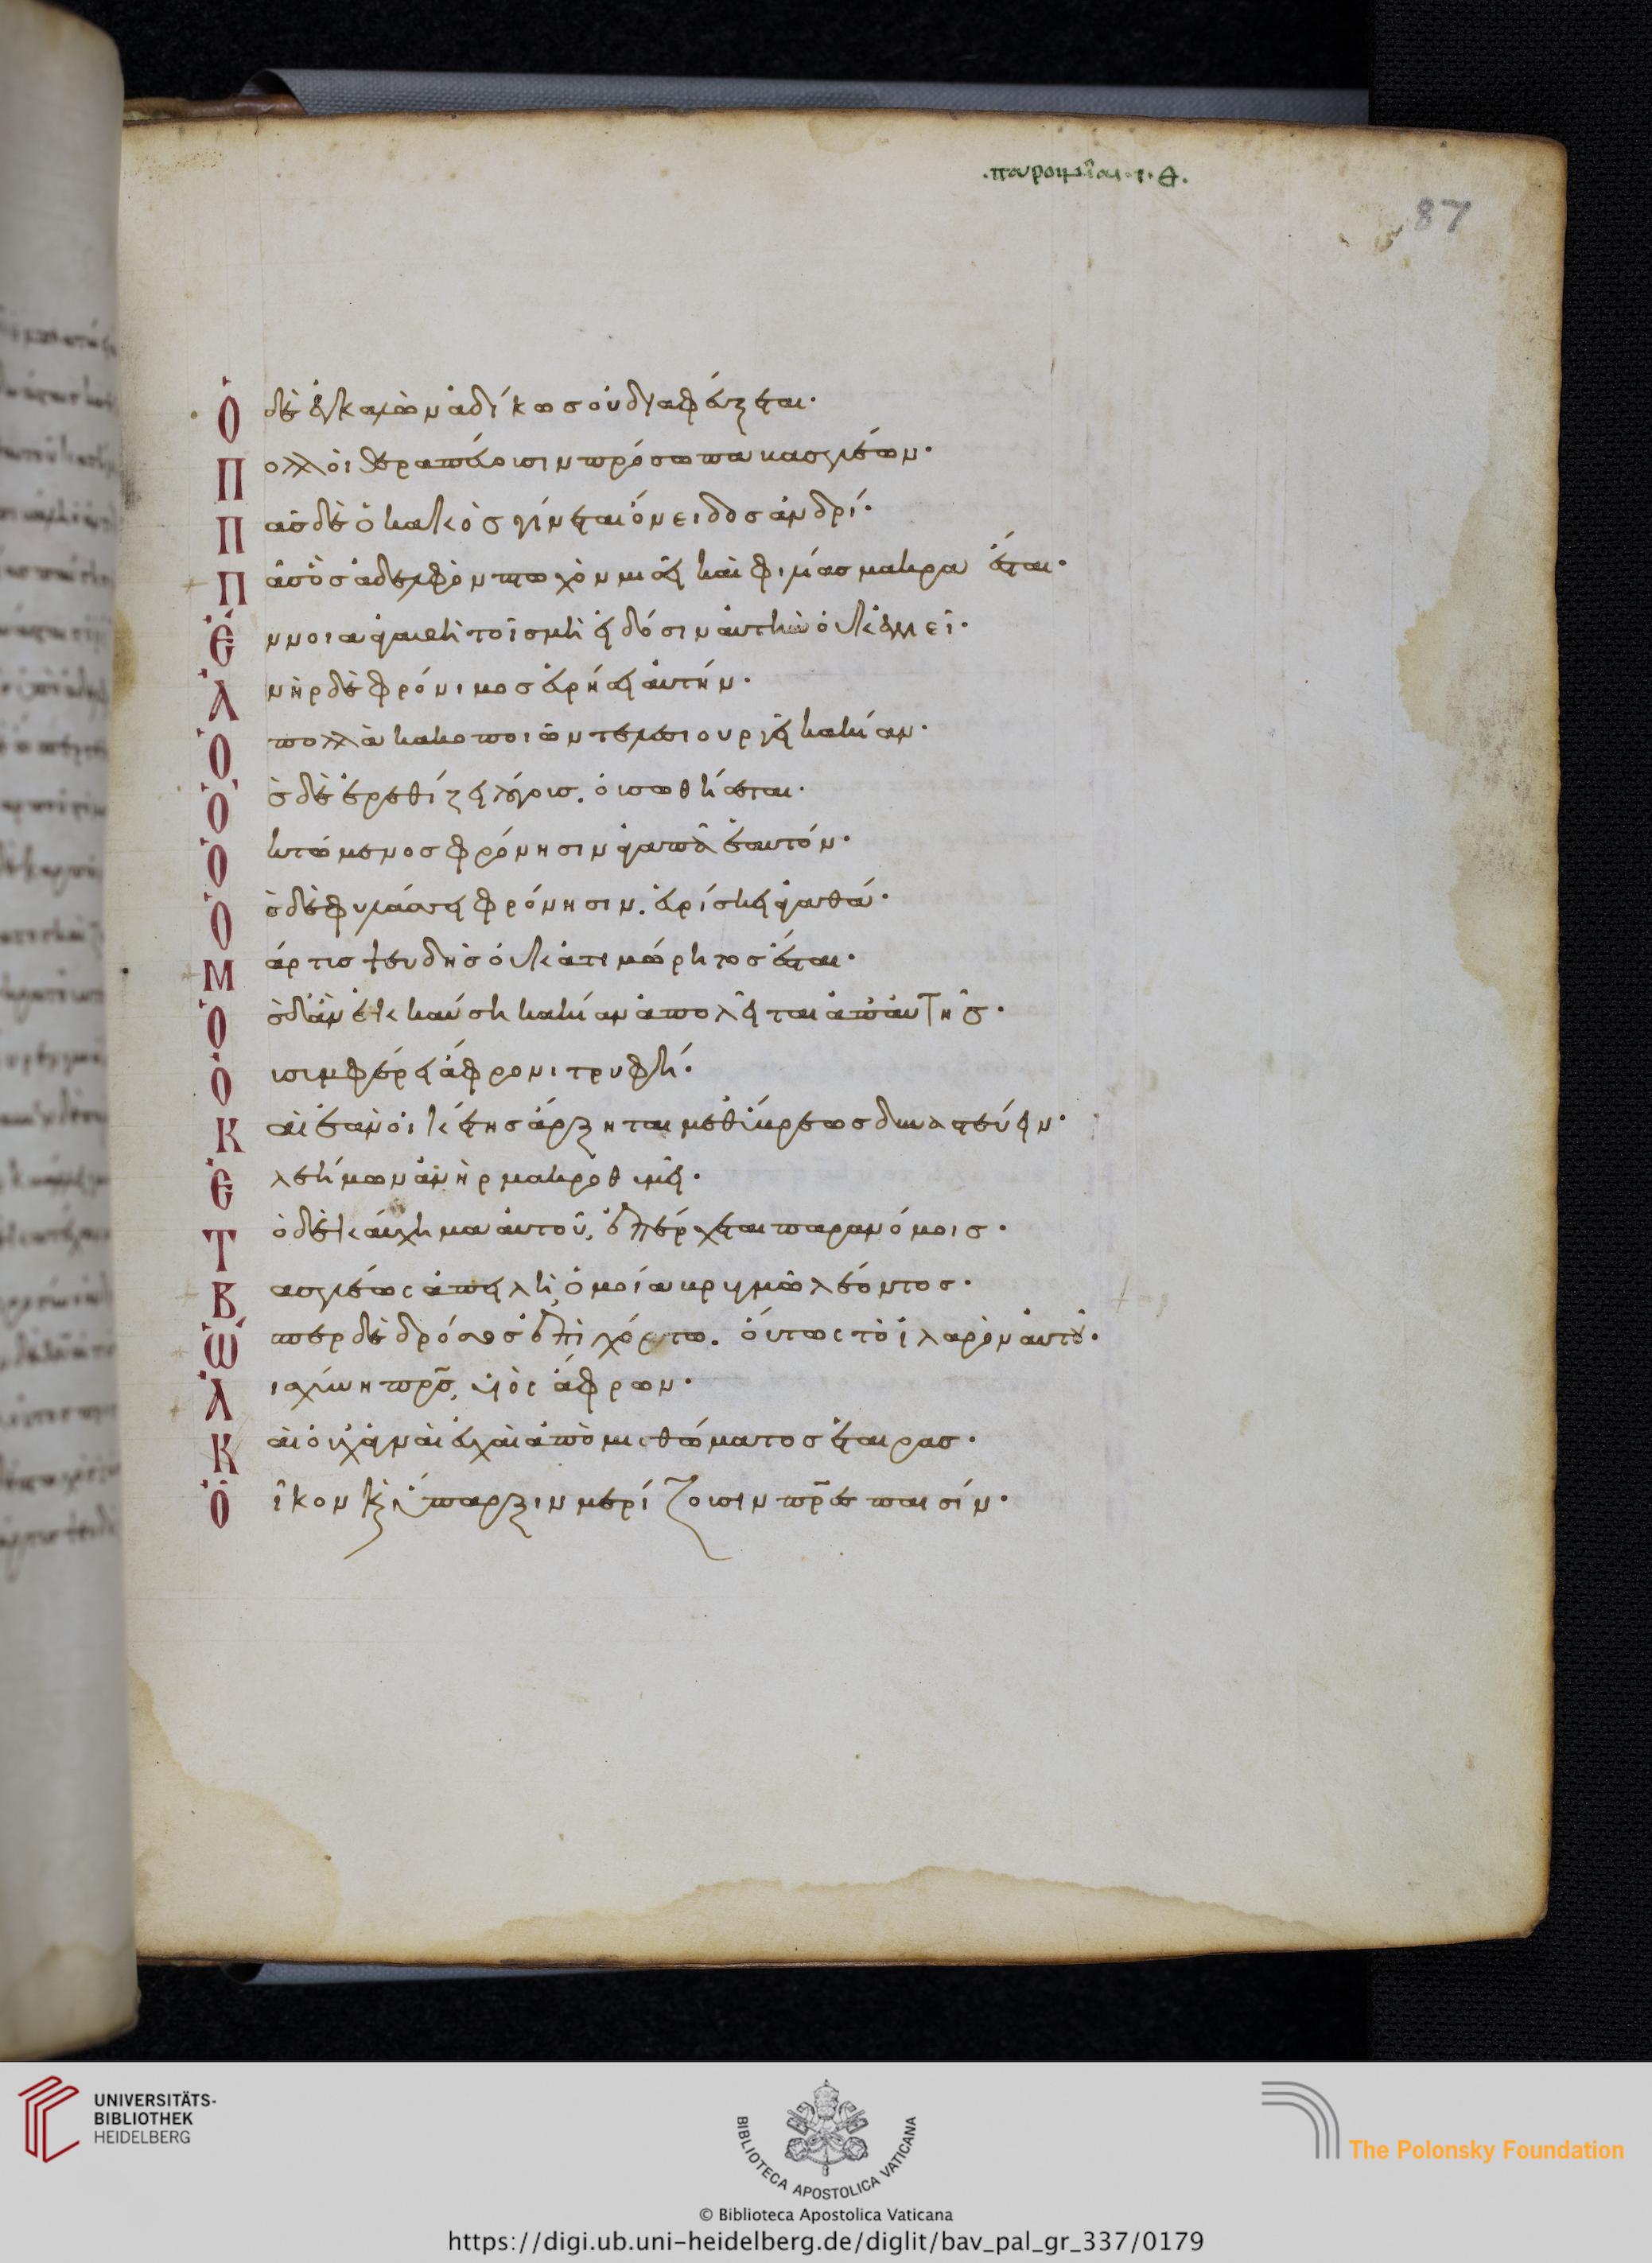 .παροιμίαι.ι.Θ.
87
Ὁ δὲ ἐγκαλῶν ἀδίκως οὐ διαφεύξεται·
Πολλοὶ θεραπεύουσιν πρόσωπα βασιλέων·
Πᾶς δὲ ὁ κακὸς γίνεται ὄνειδος ἀνδρί·
Πᾶς ὃς ἀδελφὸν πτωχὸν μισεῖ καὶ φιλίας μακρὰ ἔσται·
Ἔννοια ἀγαθὴ τοῖς μὴ εἰδόσιν αὐτὴν οὐκ ἐγγιεῖ·
Ἀνὴρ δὲ φρόνιμος εὑρήσει αὐτήν·
Ὁ πολλὰ κακοποιῶν τελεσιουργεῖ κακίαν·
Ὃς δὲ ἐρεθίζει λόγους. οὐ σωθήσεται·
Ὁ κτώμενος φρόνησιν ἀγαπᾶ ἑαυτόν·
Ὃς δὲ φυλάσσει φρόνησιν. εὑρήσει ἀγαθά·
Μάρτυς ψευδὴς οὐκ ἀτιμώρητος ἔσται·
Ὃς δ' ἂν ἐκκαύση κακίαν ἀπολεῖται ἀπ' αὐτῆς·
Οὐ συμφέρει ἄφρονι τρυφή·
Καὶ ἐὰν οἰκέτης ἄρξηται μεθ' ὕβρεως δυναστεύειν·
Ἐλεήμων ἀνὴρ μακροθυμεῖ·
Τὸ δὲ καύχημα αὐτοῦ, ἐπέρχεται παρανόμοις·
Βασιλέως ἀπειλὴ, ὁμοία βρυγμῶ λέοντος·
Ὥσπερ δὲ δρόσος ἐπὶ χόρτω. οὕτως τὸ ἱλαρὸν αὐτοῦ·
Αἰσχύνη πρς, υἱὸς ἄφρων·
Καὶ οὐχ ἁγναὶ εὐχαὶ ἀπὸ μισθώματος ἑταίρας·
Οἶκον καὶ ὕπαρξιν μερίζουσιν πρες παισίν·
UNIVERSITÄTS-
BIBLIOTHEK
HEIDELBERG
BIBLIOTECA APOSTOLICA VATICANA
The Polonsky Foundation
© Biblioteca Apostolica Vaticana
https://digi.ub.uni-heidelberg.de/diglit/bav_pal_gr_337/0179